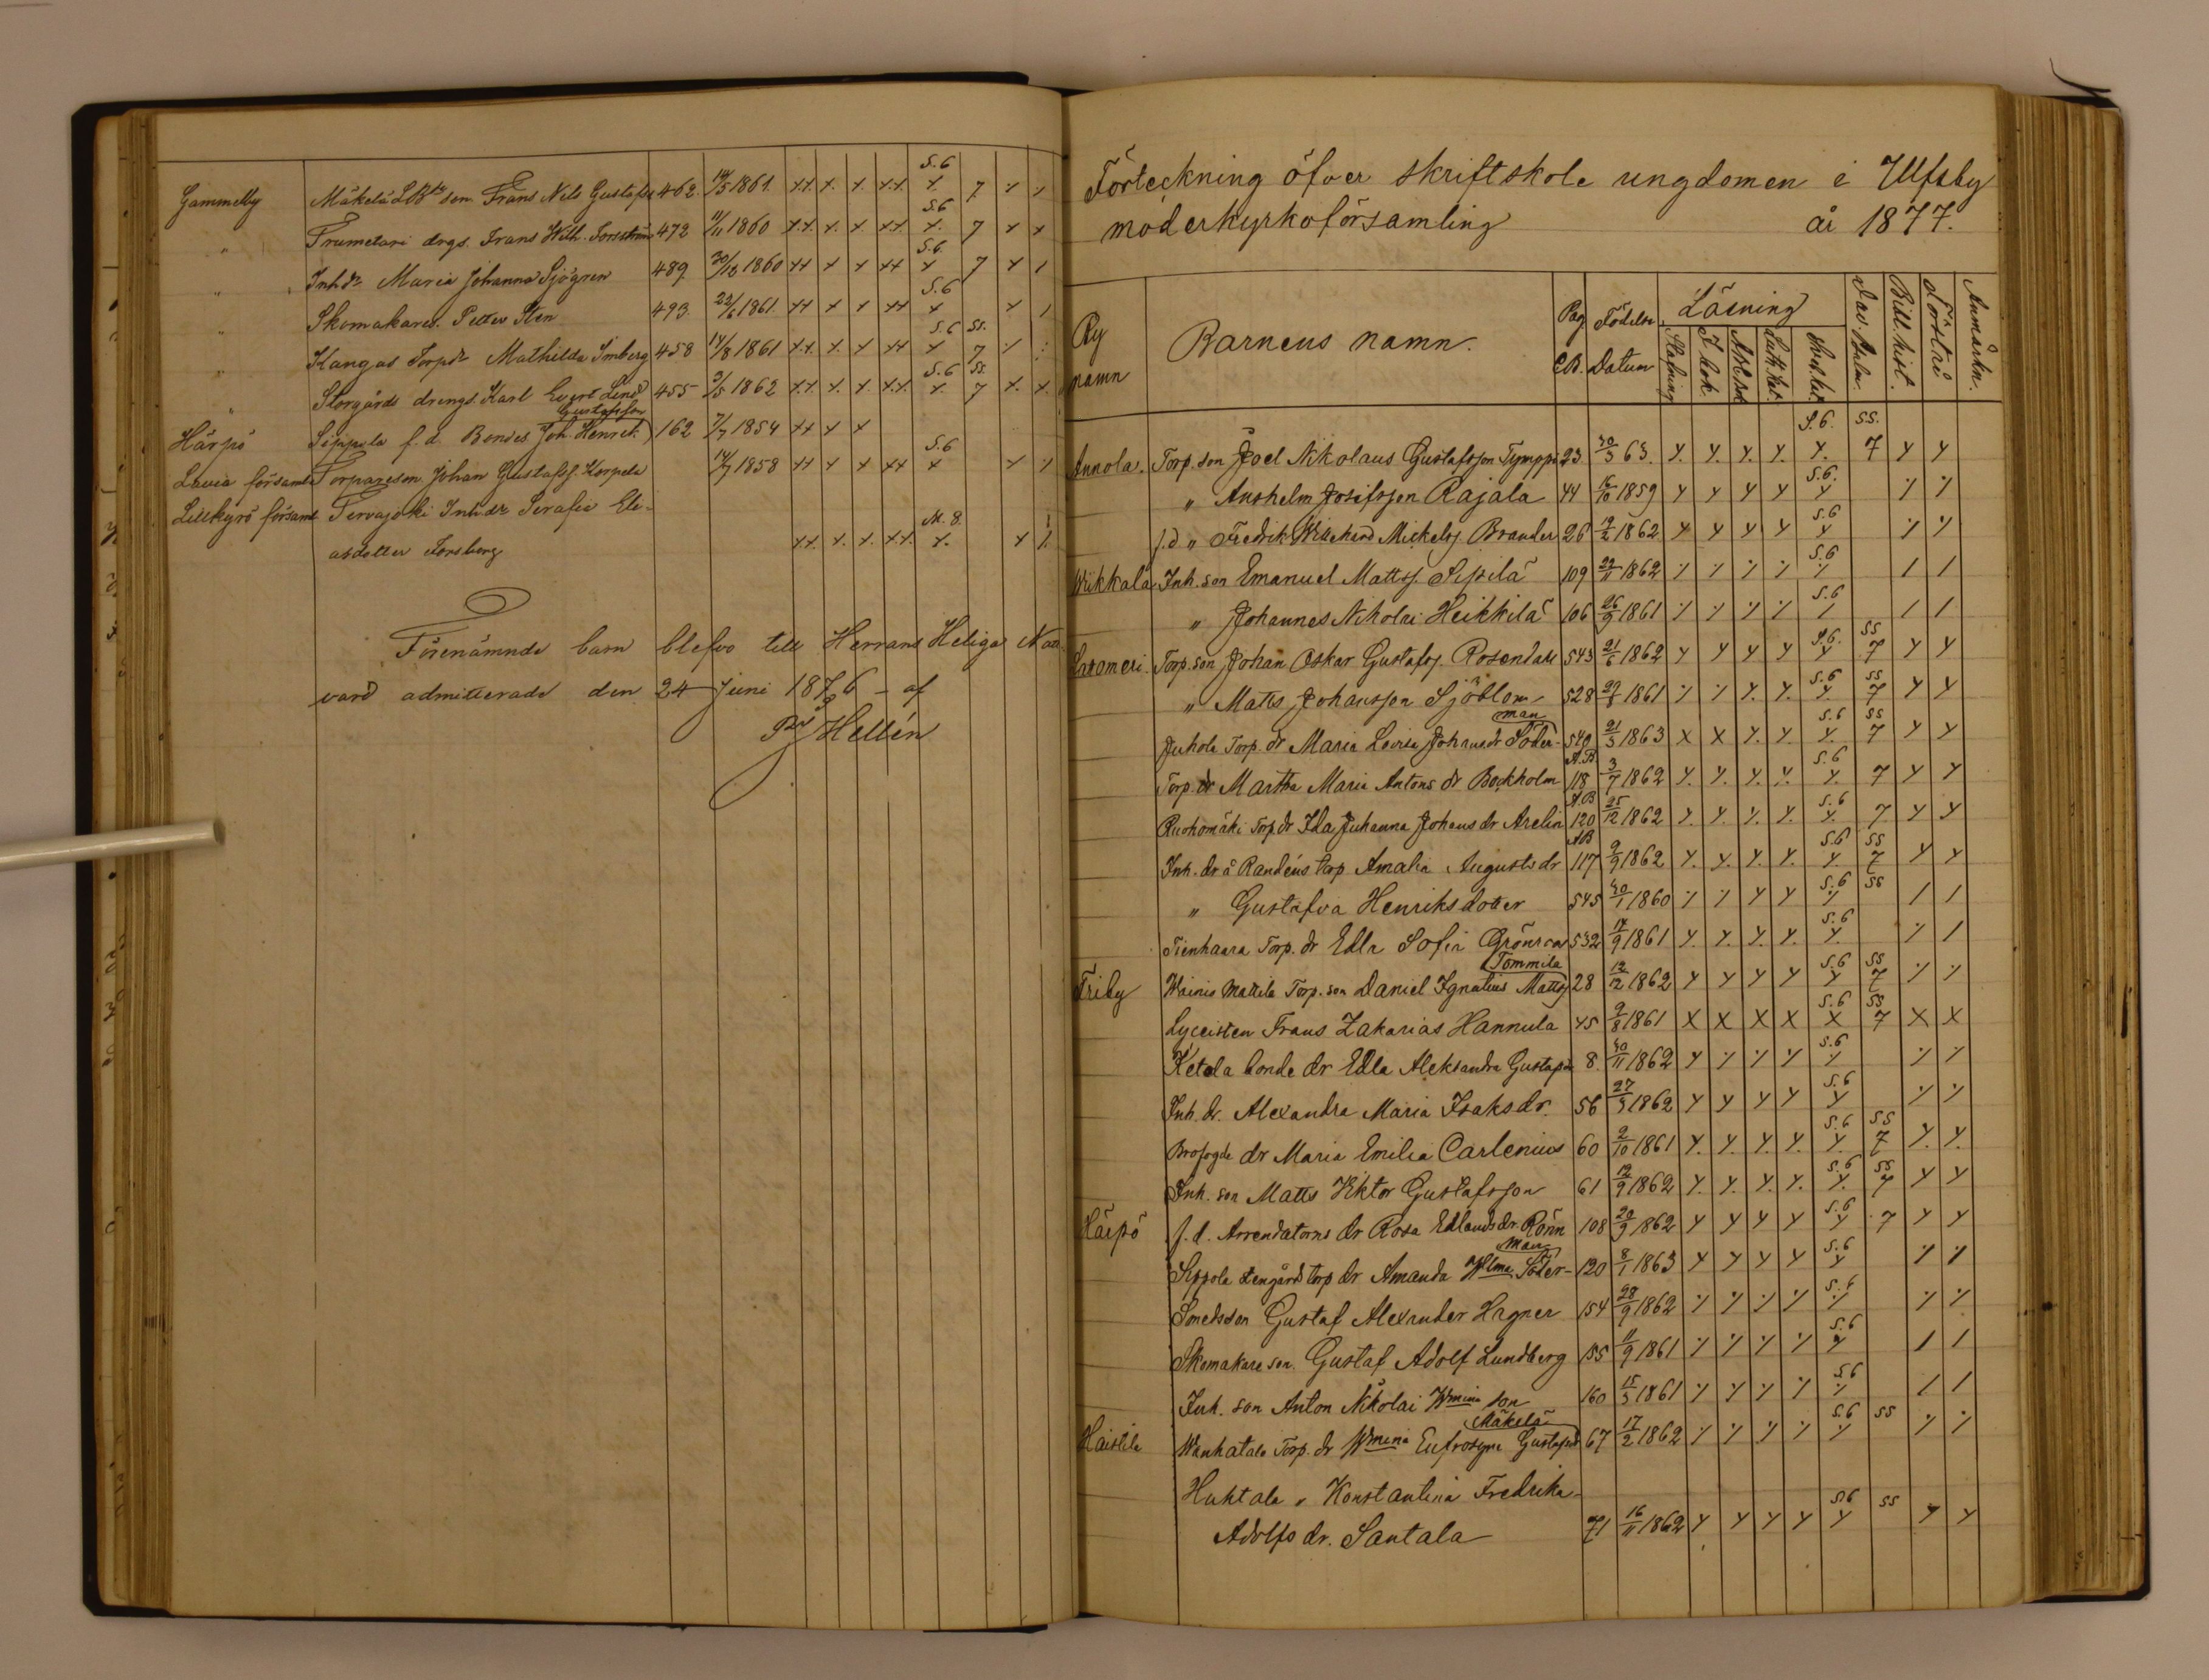 Gammelby Mäkelä Lbts son Frans Nils Gustafss 462 14/5 1861. xx x. x. xx S.6 x. 7 x x
" Frumetari drgs. Frans Wilh. 472 11/11 1860 xx. x. x xx S.6 x. 7 x x
" Inhdr Maria Johanna Sjögren 489 20/12 1860 xx x x xx S.6. x 7 x 1
" Skomakares. Petter Sten 493. 22/6 1861. xx x x xx S.6 x x 1
" Kangas Torpdr Mathilda Imberg 458 14/8 1861 x.x. x. x xx S.6 x SS. 7
" Storgårds drengs. Karl Evert Lind 455 3/5 1862 xx. x. x. x.x. S.6 x. SS. 7 x. x.
Gustafsson
Härpö Sippola f.d. Bondes Joh. Henrik 162 7/7 1854 xx x x
Lavia församl Torpareson Johan Gustafsf. Korpela 14/9 1858 xx x x xx S.6 x x
Lillkyrö församl Tervajoki Inhdr Serafia Eli-
asdotter Forsberg xx. x. x. x.x. M. 8. x. x
Förenämnde barn blefvo till Herrans Heliga Natt-
vard admitterade den 24 Juni 1876 - af
Hellén
Förteckning öfver skriftskole ungdomen i Ulfsby
moderkyrkoförsamling år 1877.
By namn Barnens namn. Pag C.B. Födelse Datum Läsning Stafning I bok Luth. kat. Dav. Psalm. Bibl. hist. Förstånd Anmärkn.
Annola. Torp. son Joel Nikolaus Gustafsson Tymppi 23 30/3 63. y. y. y. y. S.6. y. SS. 7 y y
" Anshelm Josefsson Rajala 44 16/10 1859 y y y y S.6. y
f.d " Fredrik Willehard Mickelsf. Brander 26 19/2 1862 y y y y S.6 y
Wiikkala Inh. son Emanuel Mattsf. Sipilä 109 22/11 1862 S.6 1 1
" Johannes Nikolai Heikkilä 106 26/9 1861 S.6 1 1 1
Torp. son Johan Oskar Gustafsf. Rosendahl 543 21/6 1862 y y y y S.6. y SS 7 y y
" Matts Johansson Sjöblom 528 1861 y. y. S.6 y. SS 7 y y
man
Juhola Torp. dr Maria Lovisa Johansdr Söder- 549 21/3 1863 x x y. y. S.6 y. SS 7 y y
Torp. dr Martha Maria Antons dr Bockholm A.B. 118 3/7 1862 y. y. y. y. S.6 y. 7 y y
Ruohomäki Torp dr Ida Johanna Johans dr Arelin A.B 120 25/12 1862 y. y. y. y. S.6 y. 7 y y
Inh. dr å Randéns torp Amalia Augusts dr AB 117 9/9 1862 y. y. y. y. S.6 y. SS 7 y y
" Gustafva Henriksdotter 545 30/1 1860 y y S.6 SS 1 1
Tienhaara Torp. dr Edla Sofia Grönroos 532 14/9 1861 y. y. y. y. S.6 y. 1
Tommila
Friby Wainio Mattila Torp. son Daniel Ignatius Mattsf 28 12/12 1862 y y y y S.6 y SS 7
Lyceisten Frans Zakarias Hannula 45 9/8 1861 x x x x S.6 x SS 7 x x
Ketola bonde dr Edla Aleksandra Gustafsdr 8. 30/11 1862 S.6
Inh. dr. Alexandra Maria Isaksdr. 56 27/3 1862 y y y y S.6 y
Brofogde dr Maria Emilia Carlenius 60 2/10 1861 y. y. y. y. S.6 y. SS 7 y. y.
Inh. son Matts Viktor Gustafsson 61 12/9 1862 y. y. y. y. S.6 y. SS 7 y y
Härpö f.d. Arrendatorns dr Rosa Edlandsdr. Rönn 108 20/9 1862 y y y y S.6 y 7 y y
man
Sippola stengård torp dr Amanda Wlma Söder- 120 8/1 1863 y y y y S.6 y
Smedsson Gustaf Alexander Hagner 154 28/9 1862 S.6
Skomakare son Gustaf Adolf Lundberg 155 11/9 1861 S.6 1 1
Inh. son Anton Nikolai Wmina son 160 15/3 1861 S.6 1 1
Mäkelä
Haistila Wanhatalo Torp. dr Wmina Eufrosyne Gustafsdr 67 17/2 1862 S.6 SS
Huhtala " Konstantina Fredrika
Adolfs dr. Santala 71 16/11 1862 y y y y S.6 y SS y y